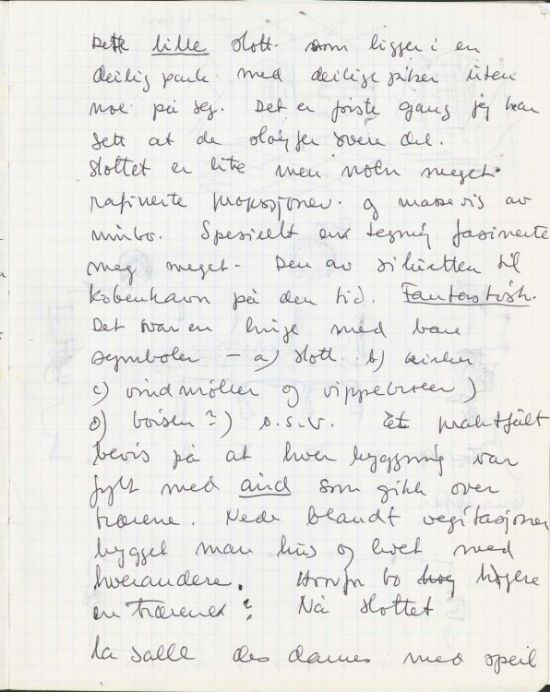 Dette lille slott. som ligger i en
deilig park med deilige piker uten
noe på seg. Det er første gang jeg har
sett at de sløyfer øvre del.
Slottet er lite men noen meget
rafinerte proposjoner. og massevis av
rimbo. Spesielt en tegning fasinerte
meg meget. Den av siluetten til
København på den tid. Fantastisk.
Det var en linje med bare
symboler – a) slott b) kirker
c) vindmøller og vippebroer)
d) børsen?) o.s.v. Et praktfult
bevis på at hver byggning var
fylt med ånd som gikk over
trærene. Nede blandt vegitasjonen
bygget man hus og levet med
hverandere. Hvorfor bo høyere
en trærene? Nå slottet
la salle des dames med speil